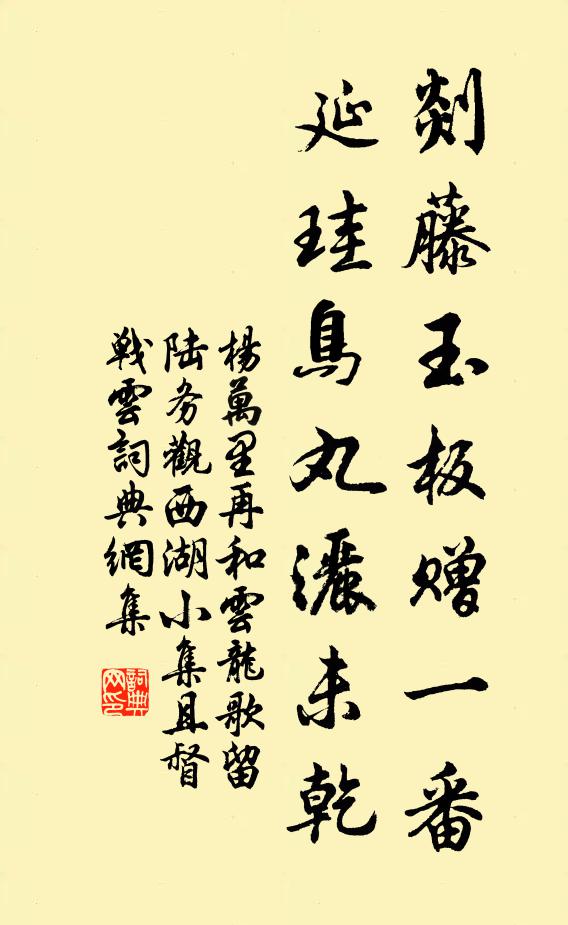 剡藤玉板赠一番
延珪烏丸灑未乾
楊萬里再和雲龍歌留
陸务觀西湖小集且督
戦雲詞典網集
詞典网印